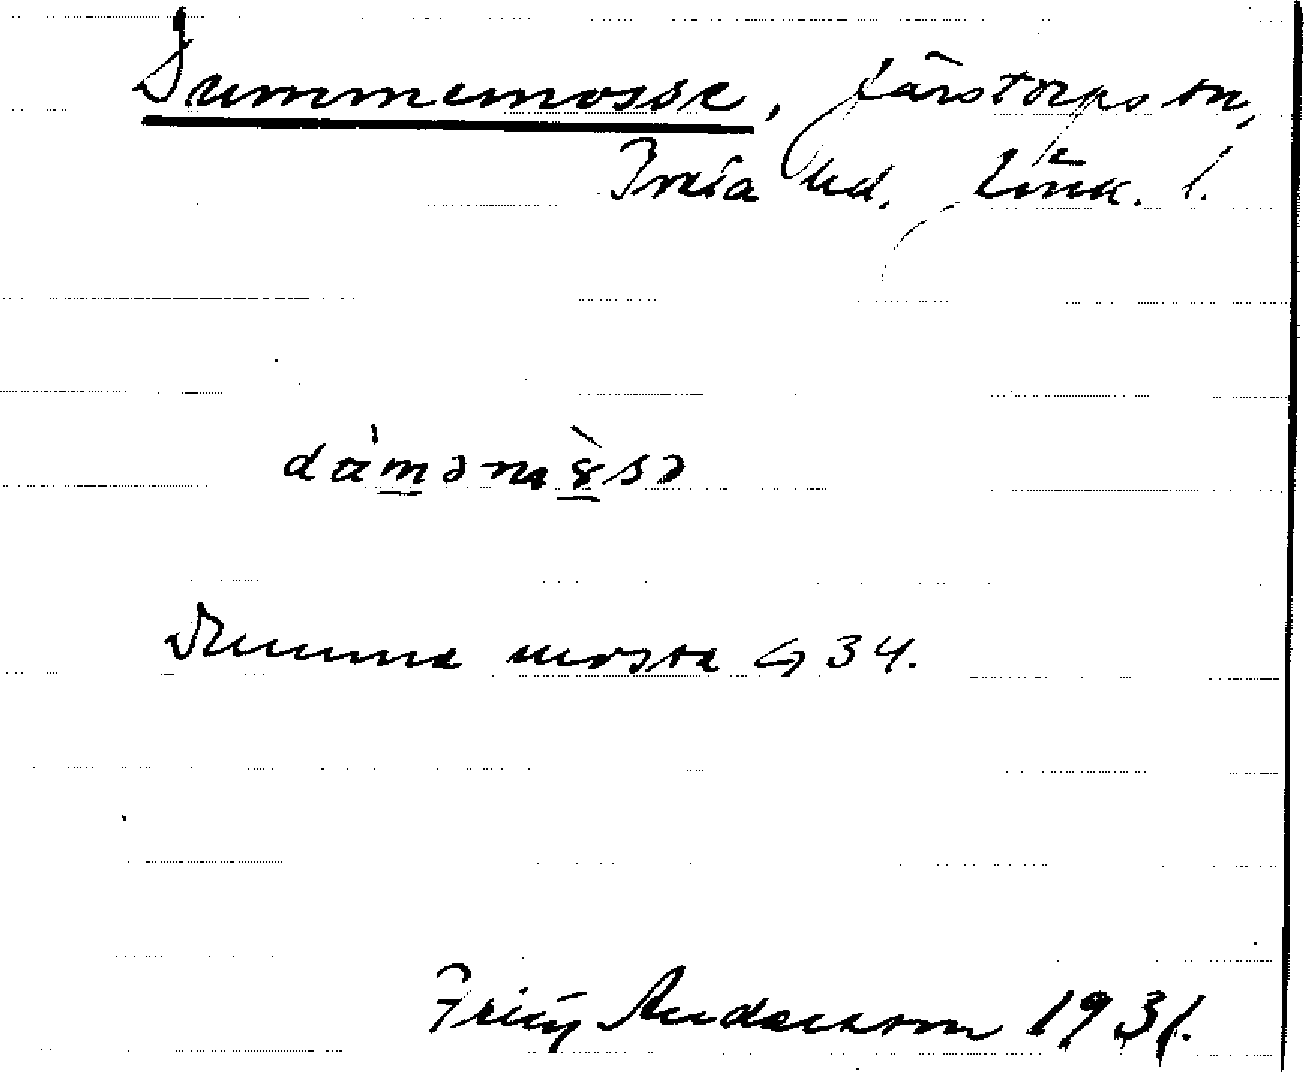 Dummemosse, Järstorps sn,
Tveta hd. Jönk. l.
dúmənı̀sə
Dumme mosse G 34.
Fritz Andersson 1931.